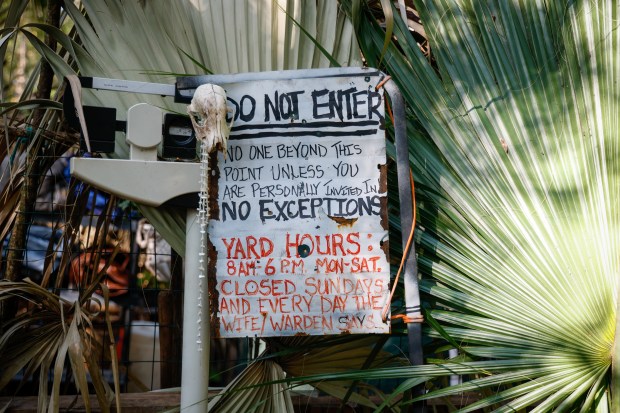 DO NOT ENTER
NO ONE BEYOND THIS
POINT UNLESS YOU
ARE PERSONALLY INVITED IN
NO EXCEPTIONS
YARD HOURS:
8 AM-6 P.M. MON-SAT.
CLOSED SUNDAYS
AND EVERY DAY THE
WIFE/WARDEN SAYS